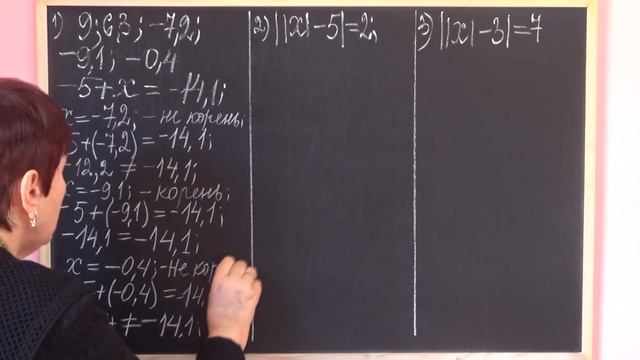 1) 9; 6,3; -7,2;
-9,1; -0,4
-5+x = -14,1;
x=-7,2; - не корень;
5+(-7,2)=-14,1;
-12,2 ≠ -14,1;
x=-9,1; - корень;
-5+(-9,1)=-14,1;
-14,1=-14,1;
x=-0,4; - не кор
+(-0,4)=-14,
≠-14,1;
2) ||x|-5|=2;
3) ||x|-3|=7